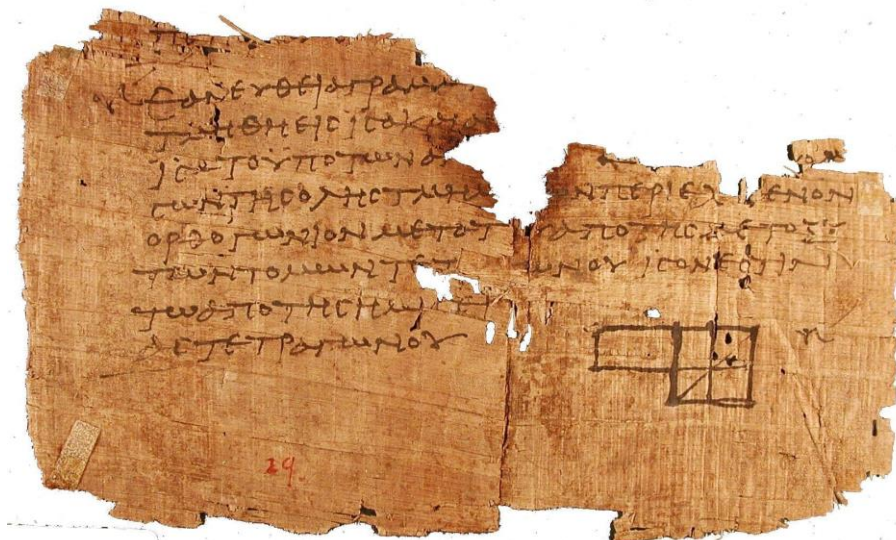 ΕΑΝ ΕΥΘΕΙΑ ΓΡΑΜΜ
ΤΜΗΘΗ ΕΙϹ ΙϹΑ Κ
ΙϹΑ ΤΟ ΥΠΟ ΤΩΝ Α
ϹΩΝ ΤΗϹ ΟΛΗϹ ΤΜΗΜ ΩΝ ΠΕΡΙΕΧ ΜΕΝΟΝ
ΟΡΘΟΓΩΝΙΟΝ ΜΕΤΑ Τ ΑΠΟ ΤΗϹ ΜΕΤΟΞΥ
ΤΩΝ ΤΟΜΩΝ ΤΕΤ ΩΝΟΥ ΙϹΟΝ ΕϹΤΙΝ
ΤΩ ΑΠΟ ΤΗϹ ΗΜΙϹΕΙ
ΑϹ ΤΕΤΡΑΓΩΝΟΥ
29.